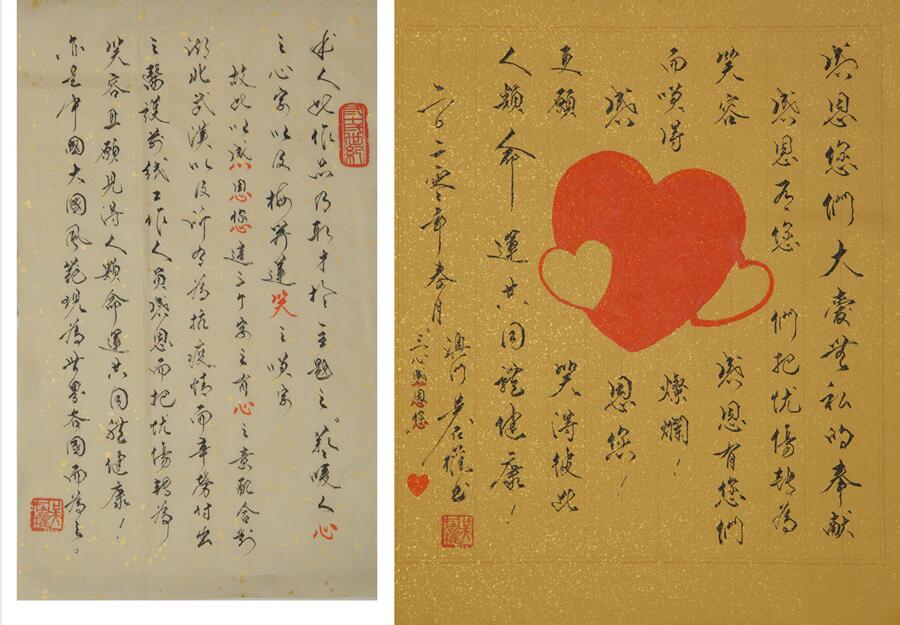 感恩您們大愛無私的奉献
感恩有您們把忧傷轉為
笑容 感恩有您們
而咲得 燦爛!
感 恩您!
更願 笑得彼此
人類命運共同體健康!
二〇二零年春月
澳門
三心感恩您
作品乃取才於主題之藝暖人心
之心字以及梅 蓮笑之咲字
故此以感恩您這三个字之有心之意配合對
湖北武漢以及所有為抗疫情而辛勞付出
之醫護前线工作人員感恩而把忧傷轉為
笑容且願見得人類命運共同體健康!
亦是中國大國風範現為世界各國而為之。